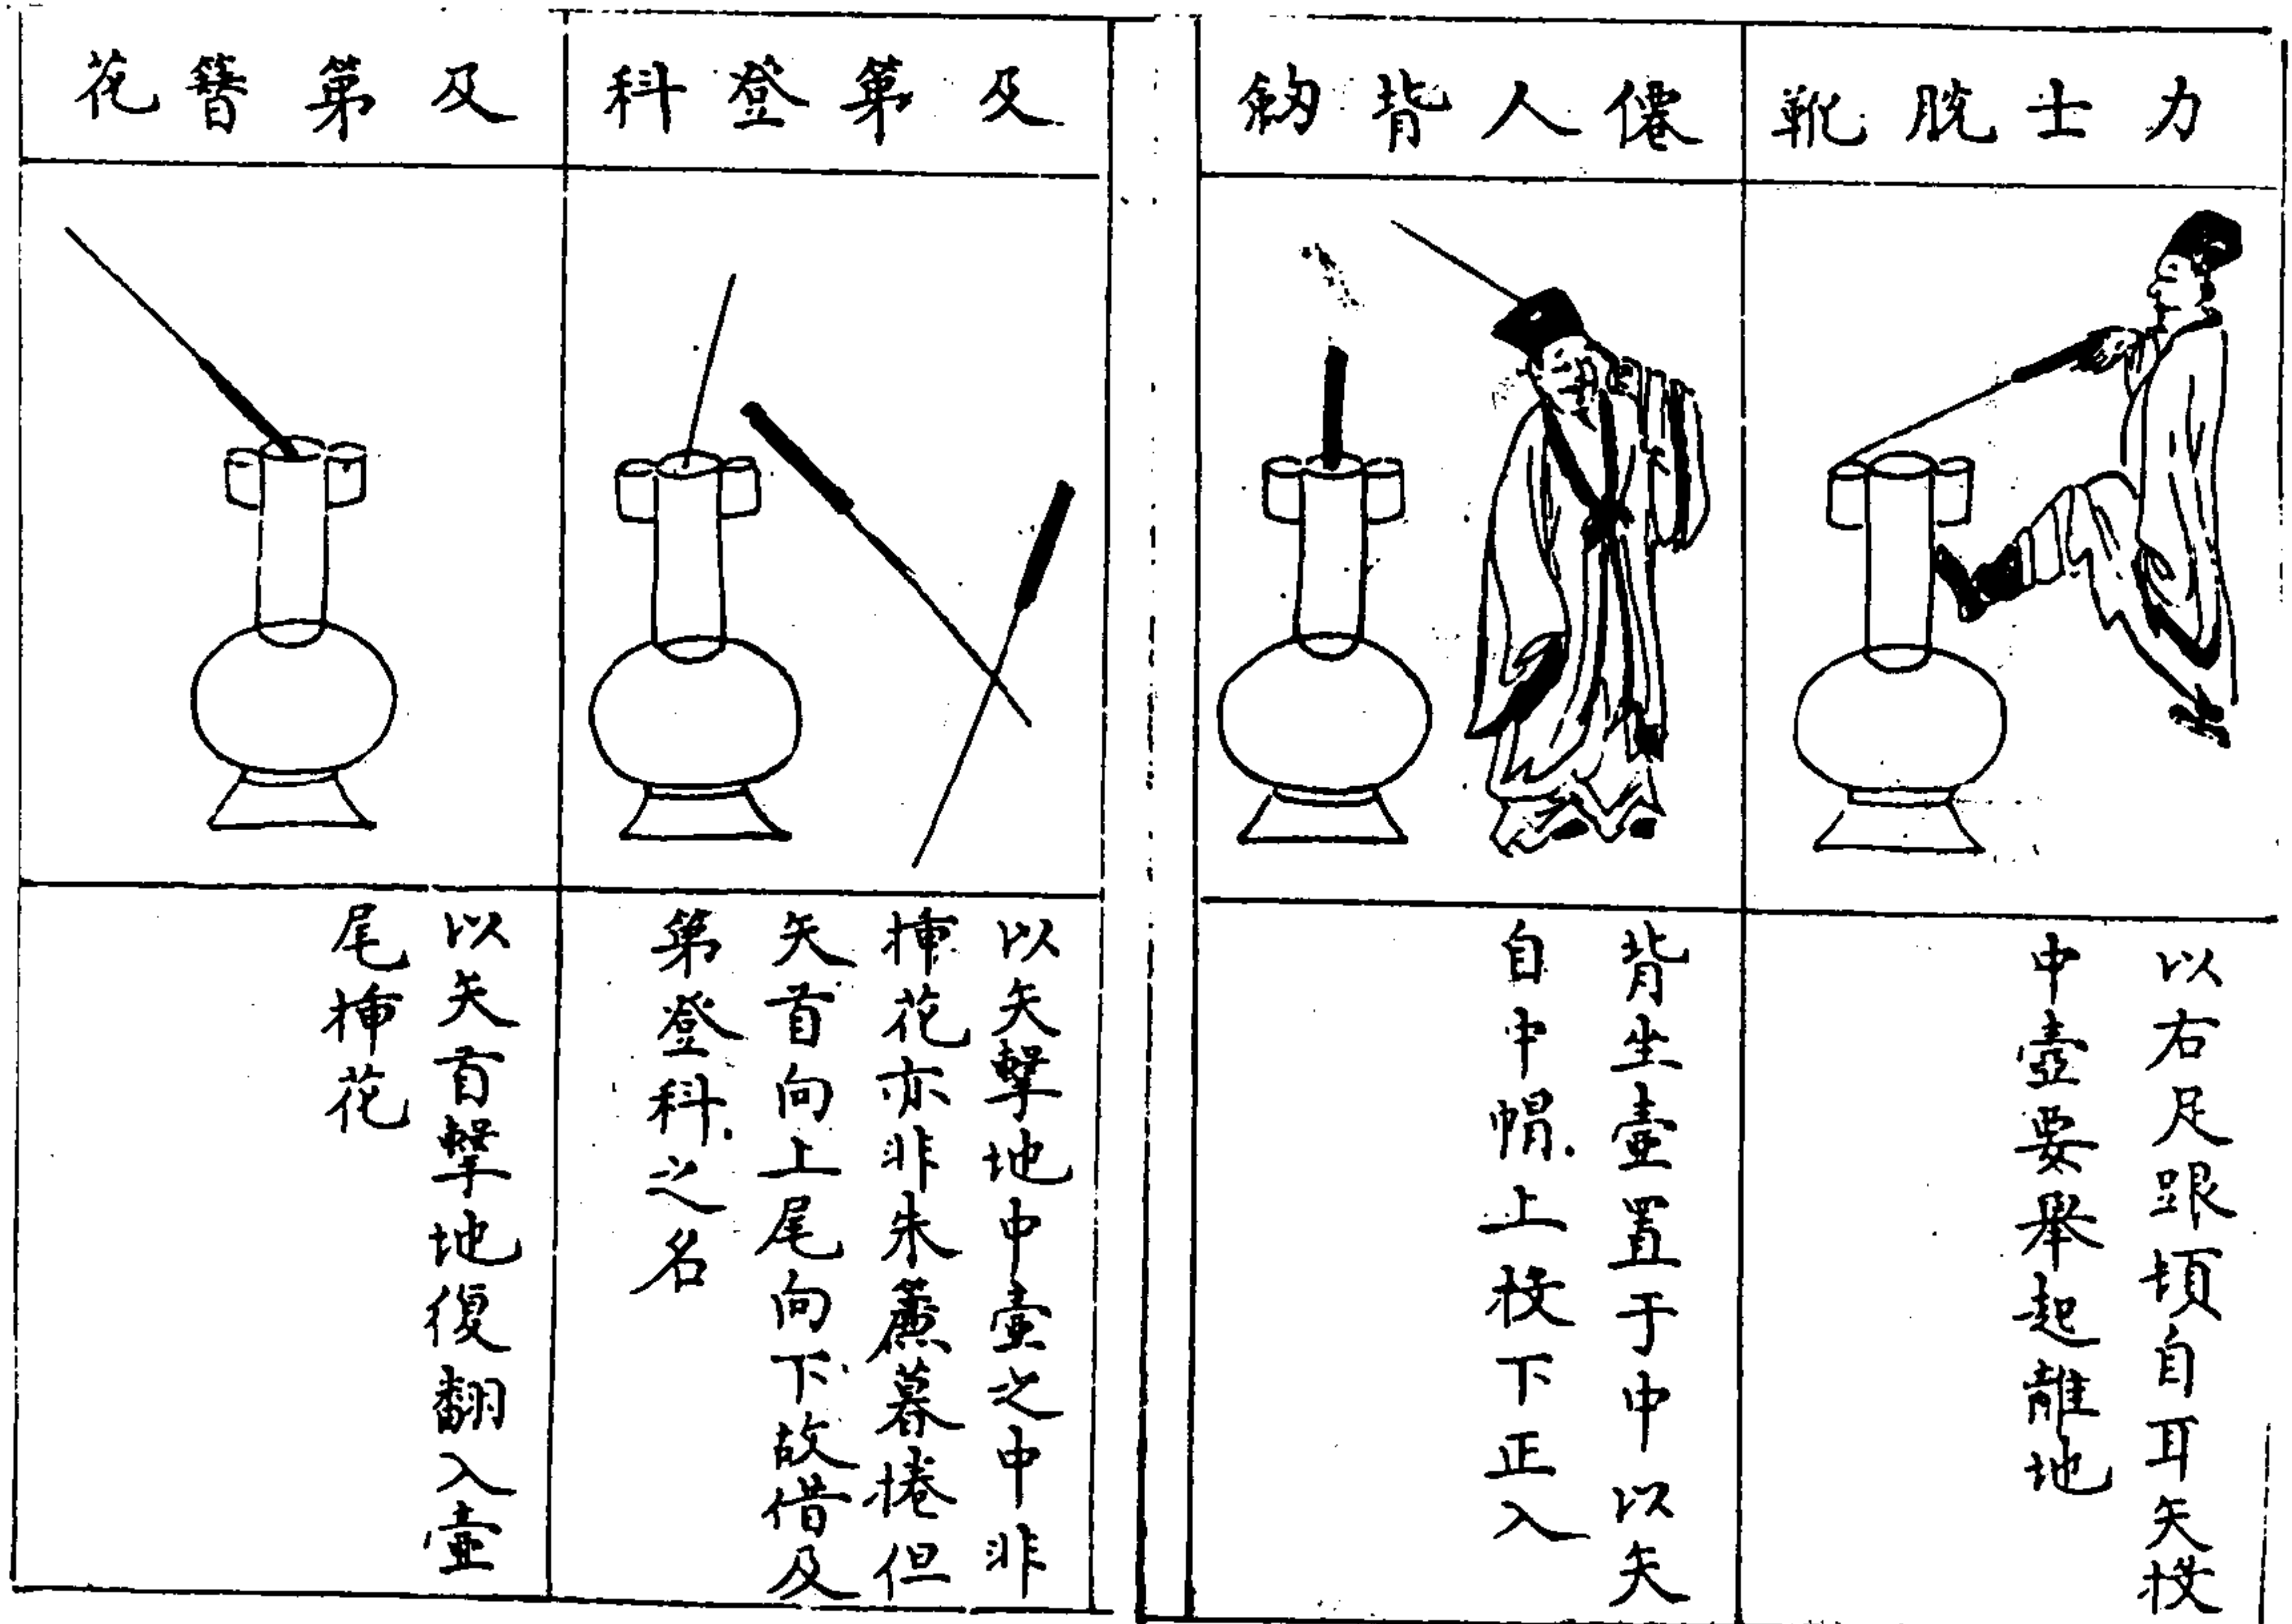 力士脫靴
以右足跟頂自耳矢投
中壺要舉起離地
僊人背劒
背坐壺置于中以矢
自中帽上投下正入
及第登科
以矢擊地中壺之中非
插花亦非朱簾暮捲但
矢首向上尾向下故借及
第登科之名
及第簪花
以矢首擊地復翻入壺
尾插花